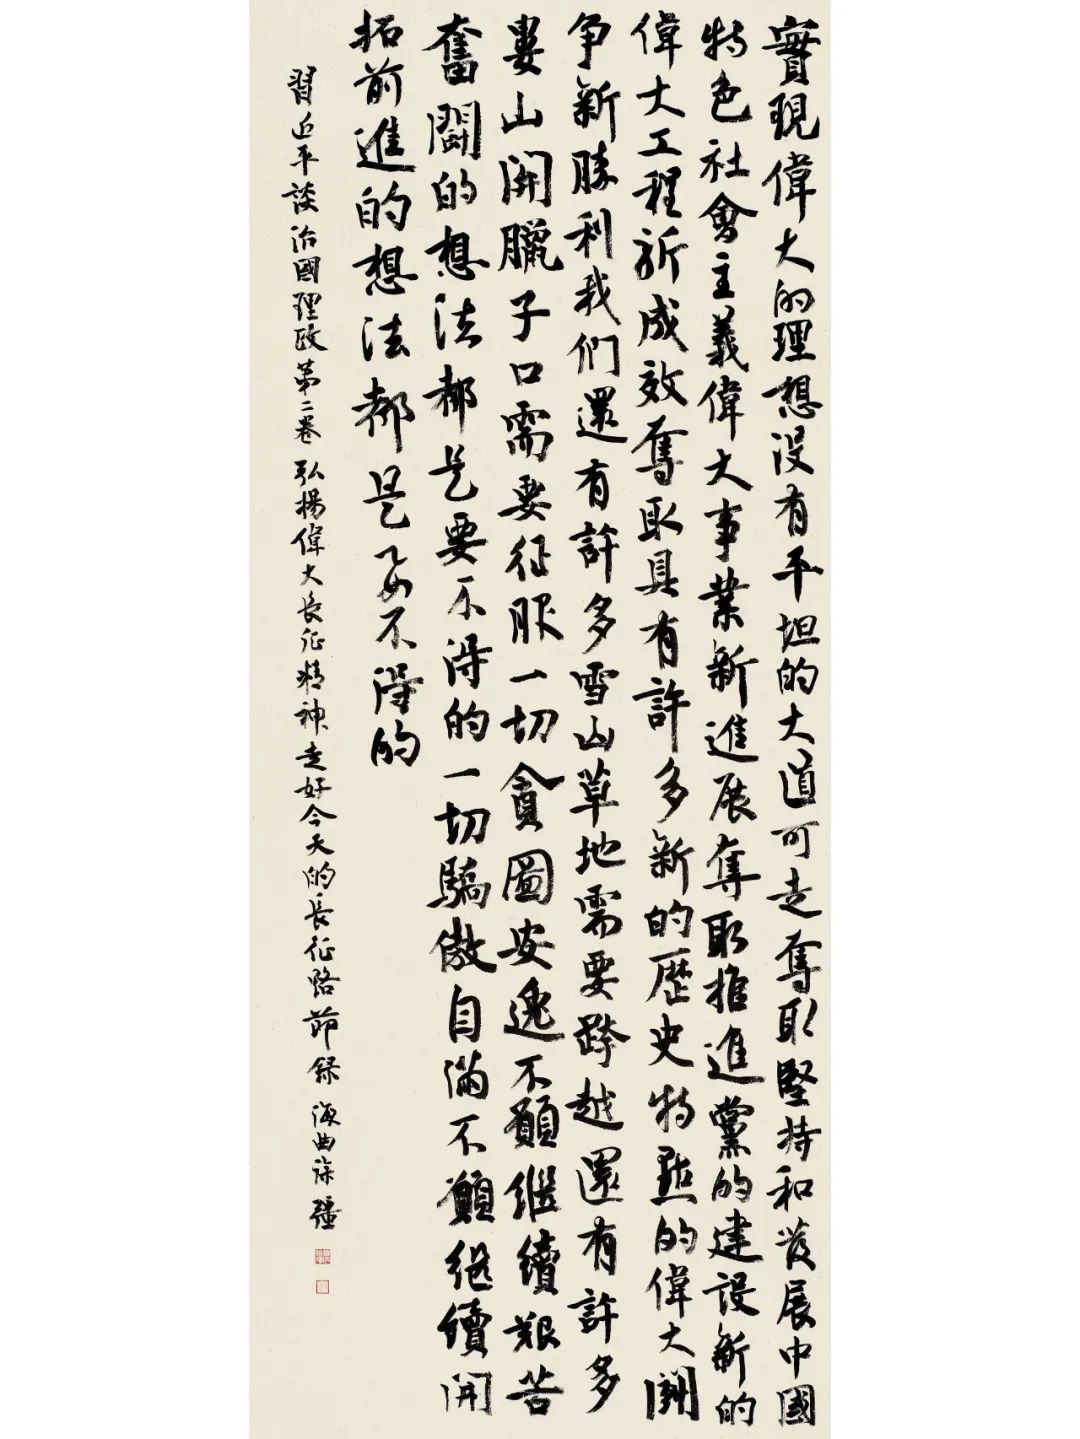 實現偉大的理想沒有平坦的大道可走奪取堅持和發展中國
特色社會主義偉大事業新進展奪取推進黨的建設新的
偉大工程新成效奪取具有許多新的歷史特點的偉大鬭
爭新勝利我們還有許多雪山草地需要跨越還有許多
婁山關臘子口需要征服一切貪圖安逸不願繼續艱苦
奮鬭的想法都是要不得的一切驕傲自滿不願繼續開
拓前進的想法都是要不得的
習近平談治國理政第二卷 弘揚偉大長征精神走好今天的長征路節錄 海曲 強